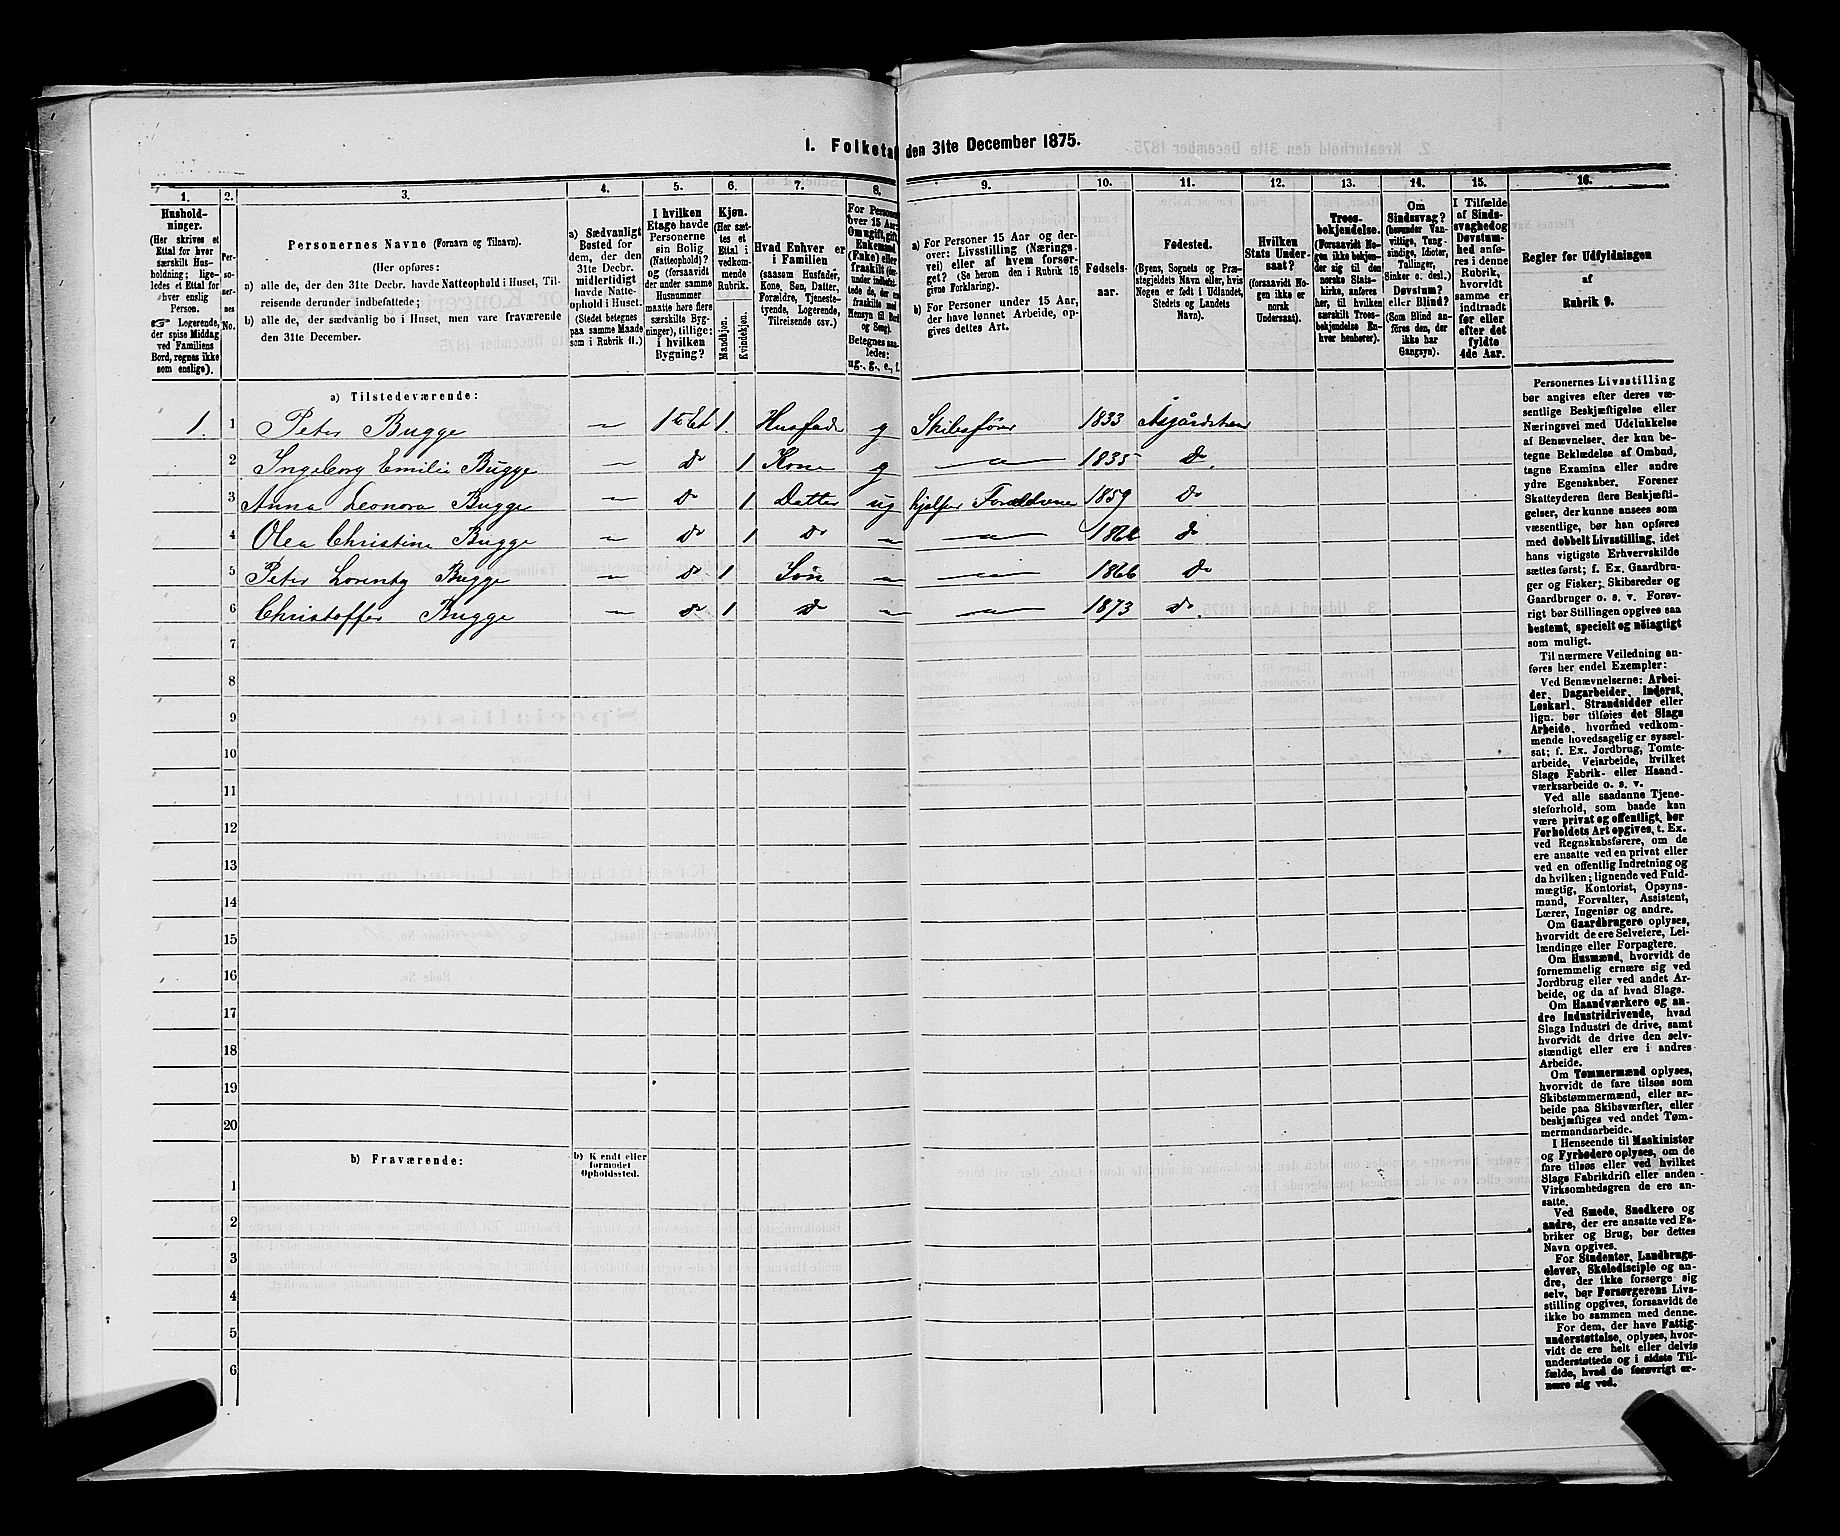 1. Folketal den 31te December 1875.
1. 2. 3. 4. 5. 6. 7. 8. 9. 10. 11. 12. 13. 14. 15. 16.
Hushold-
ninger.
(Her skrives et
Ettal for hver
særskilt Hus-
holdning; lige-
ledes et Ettal for
hver enslig
Person.
☞ Logerende,
der spise Middag
ved Familiens
Bord, regnes ikke
som enslige).
Per-
so-
ner-
nes
No.
Personernes Navne (Fornavn og Tilnavn).
(Her opføres:
a) alle de, der den 31te Decbr. havde Natteophold i Huset, Til-
reisende derunder indbefattede;
b) alle de, der sædvanlig bo i Huset, men vare fraværende
den 31te December.
a) Sædvanligt
Bosted for
dem, der den
31te Decbr.
midlertidigt
havde Natte-
ophold i Huset.
(Stedet betegnes
paa samme Maade
som i Rubrik 11.)
I hvilken
Etage havde
Personerne
sin Bolig
(Natteophold)?
og (forsaavidt
der under samme
Husnummer
maatte høre flere
særskilte Byg-
ninger), tillige:
i hvilken
Bygning?
Kjøn.
(Her sæt-
tes et
Ettal i
vedkom-
mende
Rubrik.
Mandkjøn.
Kvindekjøn.
Hvad Enhver er
i Familien
(saasom Husfader,
Kone, Søn, Datter,
Forældre, Tjeneste-
tyende, Logerende,
Tilreisende osv.)
For Personer
over 15 Aar:
Om ugift, gift,
Enkemand
(Enke) eller
fraskilt
Betegnes saa-
ledes:
ug., g., e., f.
a) For Personer 15 Aar og der-
over: Livsstilling (Nærings-
vei) eller af hvem forsør-
get? (Se herom den i Rubrik 16
givne Forklaring).
b) For Personer under 15 Aar,
der have lønnet Arbeide, op-
gives dettes Art.
Fødsels-
aar.
Fødested.
(Byens, Sognets og Præ-
stegjeldets Navn eller, hvis
Nogen er født i Udlandet,
Stedets og Landets
Navn).
Hvilken
Stats Under-
saat?
(forsaavidt No-
gen ikke er
norsk
Undersaat).
Troes-
bekjendelse.
(Forsaavidt No-
gen ikke bekjen-
der sig til den
norske Stats-
kirke, anføres
her, til hvilken
særskilt Troes-
bekjendelse En-
hver henhører).
Om
Sindssvag?
(herunder Van-
vittige, Tung-
sindige, Idioter,
Tullinger,
Sinker o. desl.)
Døvstum?
eller Blind?
(Som Blind an-
føres den, der
ikke har
Gangsyn).
I Tilfælde
af Sinds-
svaghed og
Døvstum-
hed anfø-
res i denne
Rubrik,
hvorvidt
samme er
indtraadt
før eller
efter det
fyldte
4de Aar.
Regler for Udfyldningen
af
Rubrik 9.
a) Tilstedeværende:
1. 1 Peter Bugge — 1ste Et 1. Husfader g Skibsfører 1833 Åsgårdstran
2 Ingeborg Emilie Bugge — Do 1 Kone g — 1835 Do.
3 Anna Leonora Bugge — Do 1 Datter ug hjelper Forældrene 1859 Do
4 Olea Christina Bugge — Do 1 Do — — Do
5 Peter Lorentz Bugge — Do 1 Søn — — 1866 Do
6 Christoffer Bugge — Do 1 Do — — 1873 Do.
7
8
9
10
11
12
13
14
15
16
17
18
19
20
b) Fraværende:
b) Kjendt eller
formodet
Opholdssted.
1
2
3
4
5
6
Personernes Livsstilling
bør angives efter deres væ-
sentlige Beskjæftigelse eller
Næringsvei med Udelukkelse
af Benævnelser, der kun be-
tegne Beklædelse af Ombud,
tagne Examina eller andre
ydre Egenskaber. Forener
Skatteyderen flere Beskjæfti-
gelser, der kunne ansees som
væsentlige, bør han opføres
med dobbelt Livsstilling, idet
hans vigtigste Erhvervskilde
sættes først; f. Ex. Gaardbru-
ger og Fisker; Skibsreder og
Gaardbruger o. s. v. Forøv-
rigt bør Stillingen opgives saa
bestemt, specielt og nøiagtigt
som muligt.
Til nærmere Veiledning an-
føres her endel Exempler:
Ved Benævnelserne: Arbei-
der, Dagarbeider, Inderst,
Løskarl, Strandsidder eller
lign. bør tilføies det Slags
Arbeide, hvormed vedkom-
mende hovedsagelig er syssel-
sat; f. Ex. Jordbrug, Tomte-
arbeide, Veiarbeide, hvilket
Slags Fabrik- eller Haand-
værksarbeide o. s. v.
Ved alle saadanne Tjene-
steforhold, som baade kan
være privat og offentligt, bør
Forholdets Art opgives, t. Ex.
ved Regnskabsførere, om de
ere ansatte ved en privat eller
ved en offentlig Indretning og
da hvilken; lignende ved Fuld-
mægtig, Kontorist, Opsyns-
mand, Forvalter, Assistent,
Lærer, Ingeniør og andre.
Om Gaardbrugere oplyses,
hvorvidt de ere Selveiere, Lei-
lændinge eller Forpagtere.
Om Husmænd, hvorvidt de
fornemmelig ernære sig ved
Jordbrug eller ved andet Ar-
beide, og da af hvad Slags.
Om Haandværkere og an-
dre Industridrivende, hvad
Slags Industri de drive, samt
hvorvidt de drive den selv-
stændigt eller ere i andres
Arbeide.
Om Tømmermænd oplyses,
hvorvidt de fare tilsøs som
Skibstømmermænd, eller ar-
beide paa Skibsværfter, eller
beskjæftiges ved andet Tøm-
mermandsarbeide.
I Henseende til Maskinister
og Fyrbødere oplyses, om de
fare tilsøs eller ved hvilket
Slags Fabrikdrift eller anden
Virksomhedsgren de ere an-
satte.
Ved Smede, Snedkere og
andre, der ere ansatte ved Fa-
briker og Brug, bør dettes
Navn opgives.
For Studenter, Landbrugs-
elever, Skoledisciple og an-
dre, der ikke forsørge sig
selv, bør Forsørgerens Livs-
stilling opgives, forsaavidt de
ikke bo sammen med denne.
For dem, der have Fattig-
understøttelse, oplyses, hvor-
vidt de ere helt eller delvis
understøttede og i sidste Til-
fælde, hvad de forøvrigt er-
nære sig ved.